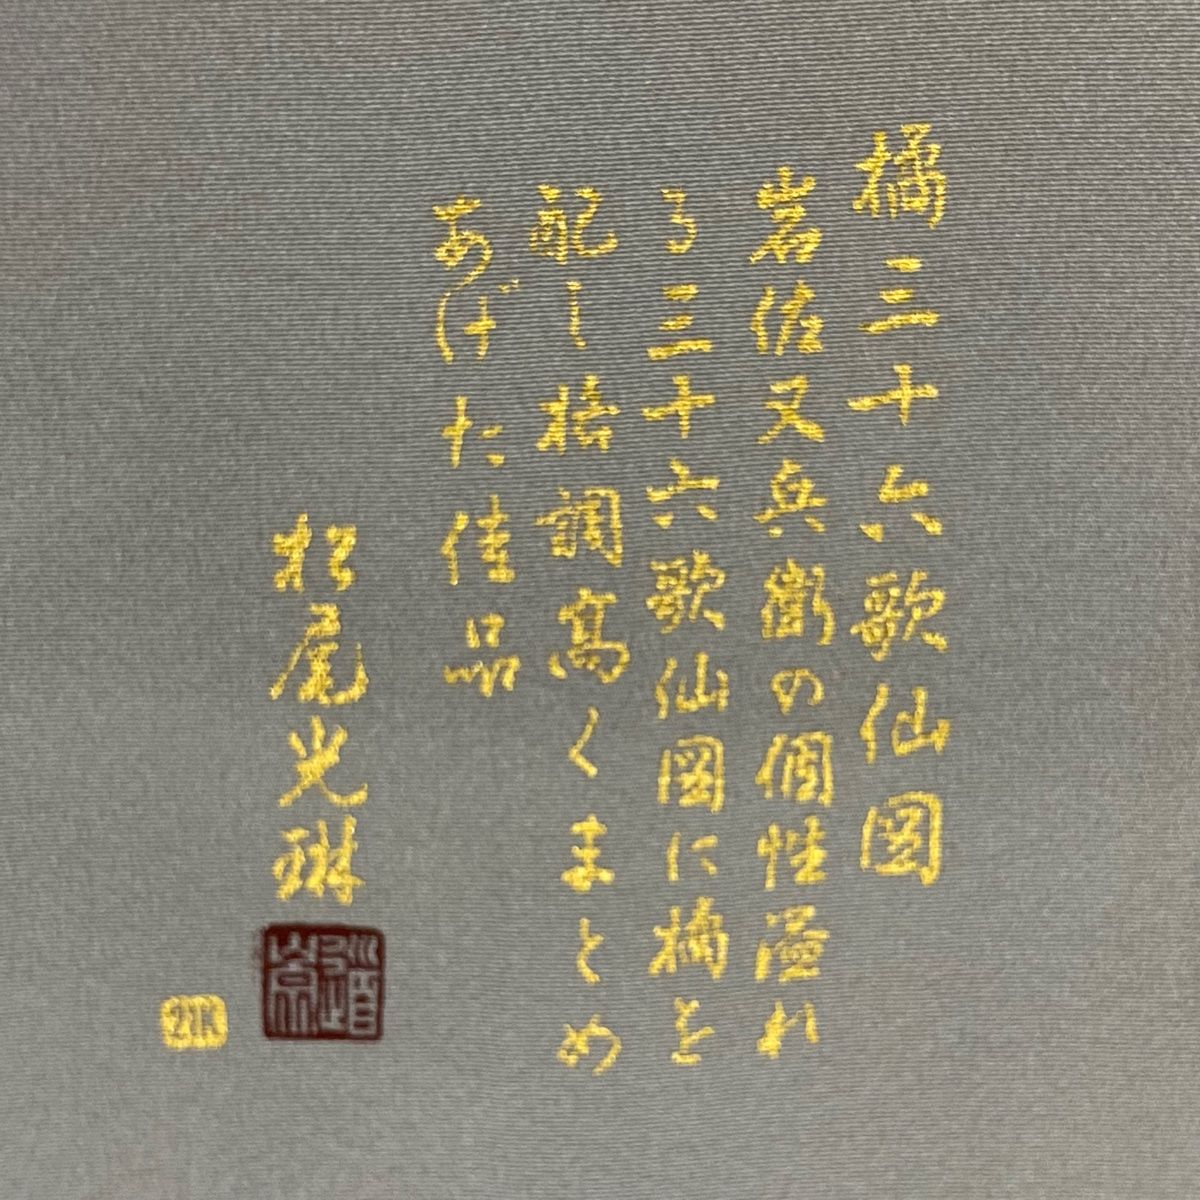 橘三十六歌仙図
岩佐又兵衛の個性溢れ
る三十六歌仙図に橘を
配し格調高くまとめ
あげた佳品
松尾光琳
21K